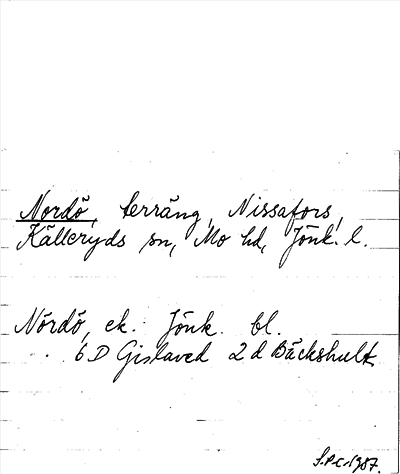 Nordö, terräng, Nissafors,
Källeryds sn, Mo hd, Jönk. l.
Nordö, ek. Jönk. bl.
6 D Gislaved 2 d Bäckshult
S.P.C. 1987.